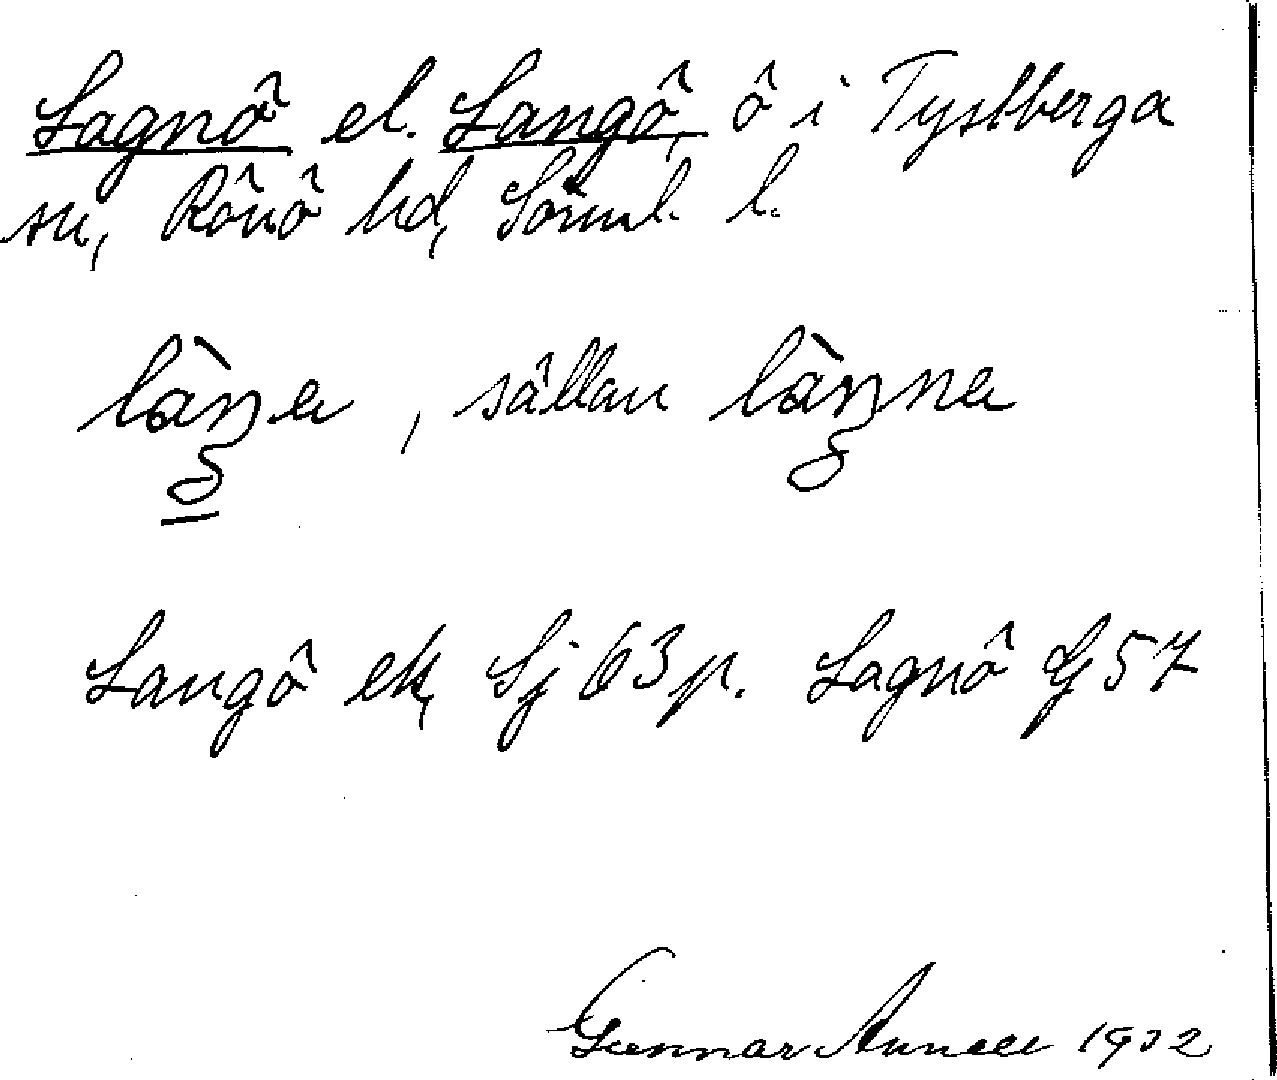 Lagnö el. Langö, ö i Tystberga
sn, Rönö hd, Sörml. l.
làŋa, sällan làŋna
Langö ek, Sj 63 p. Lagnö Gj 57
Gunnar Annell 1932